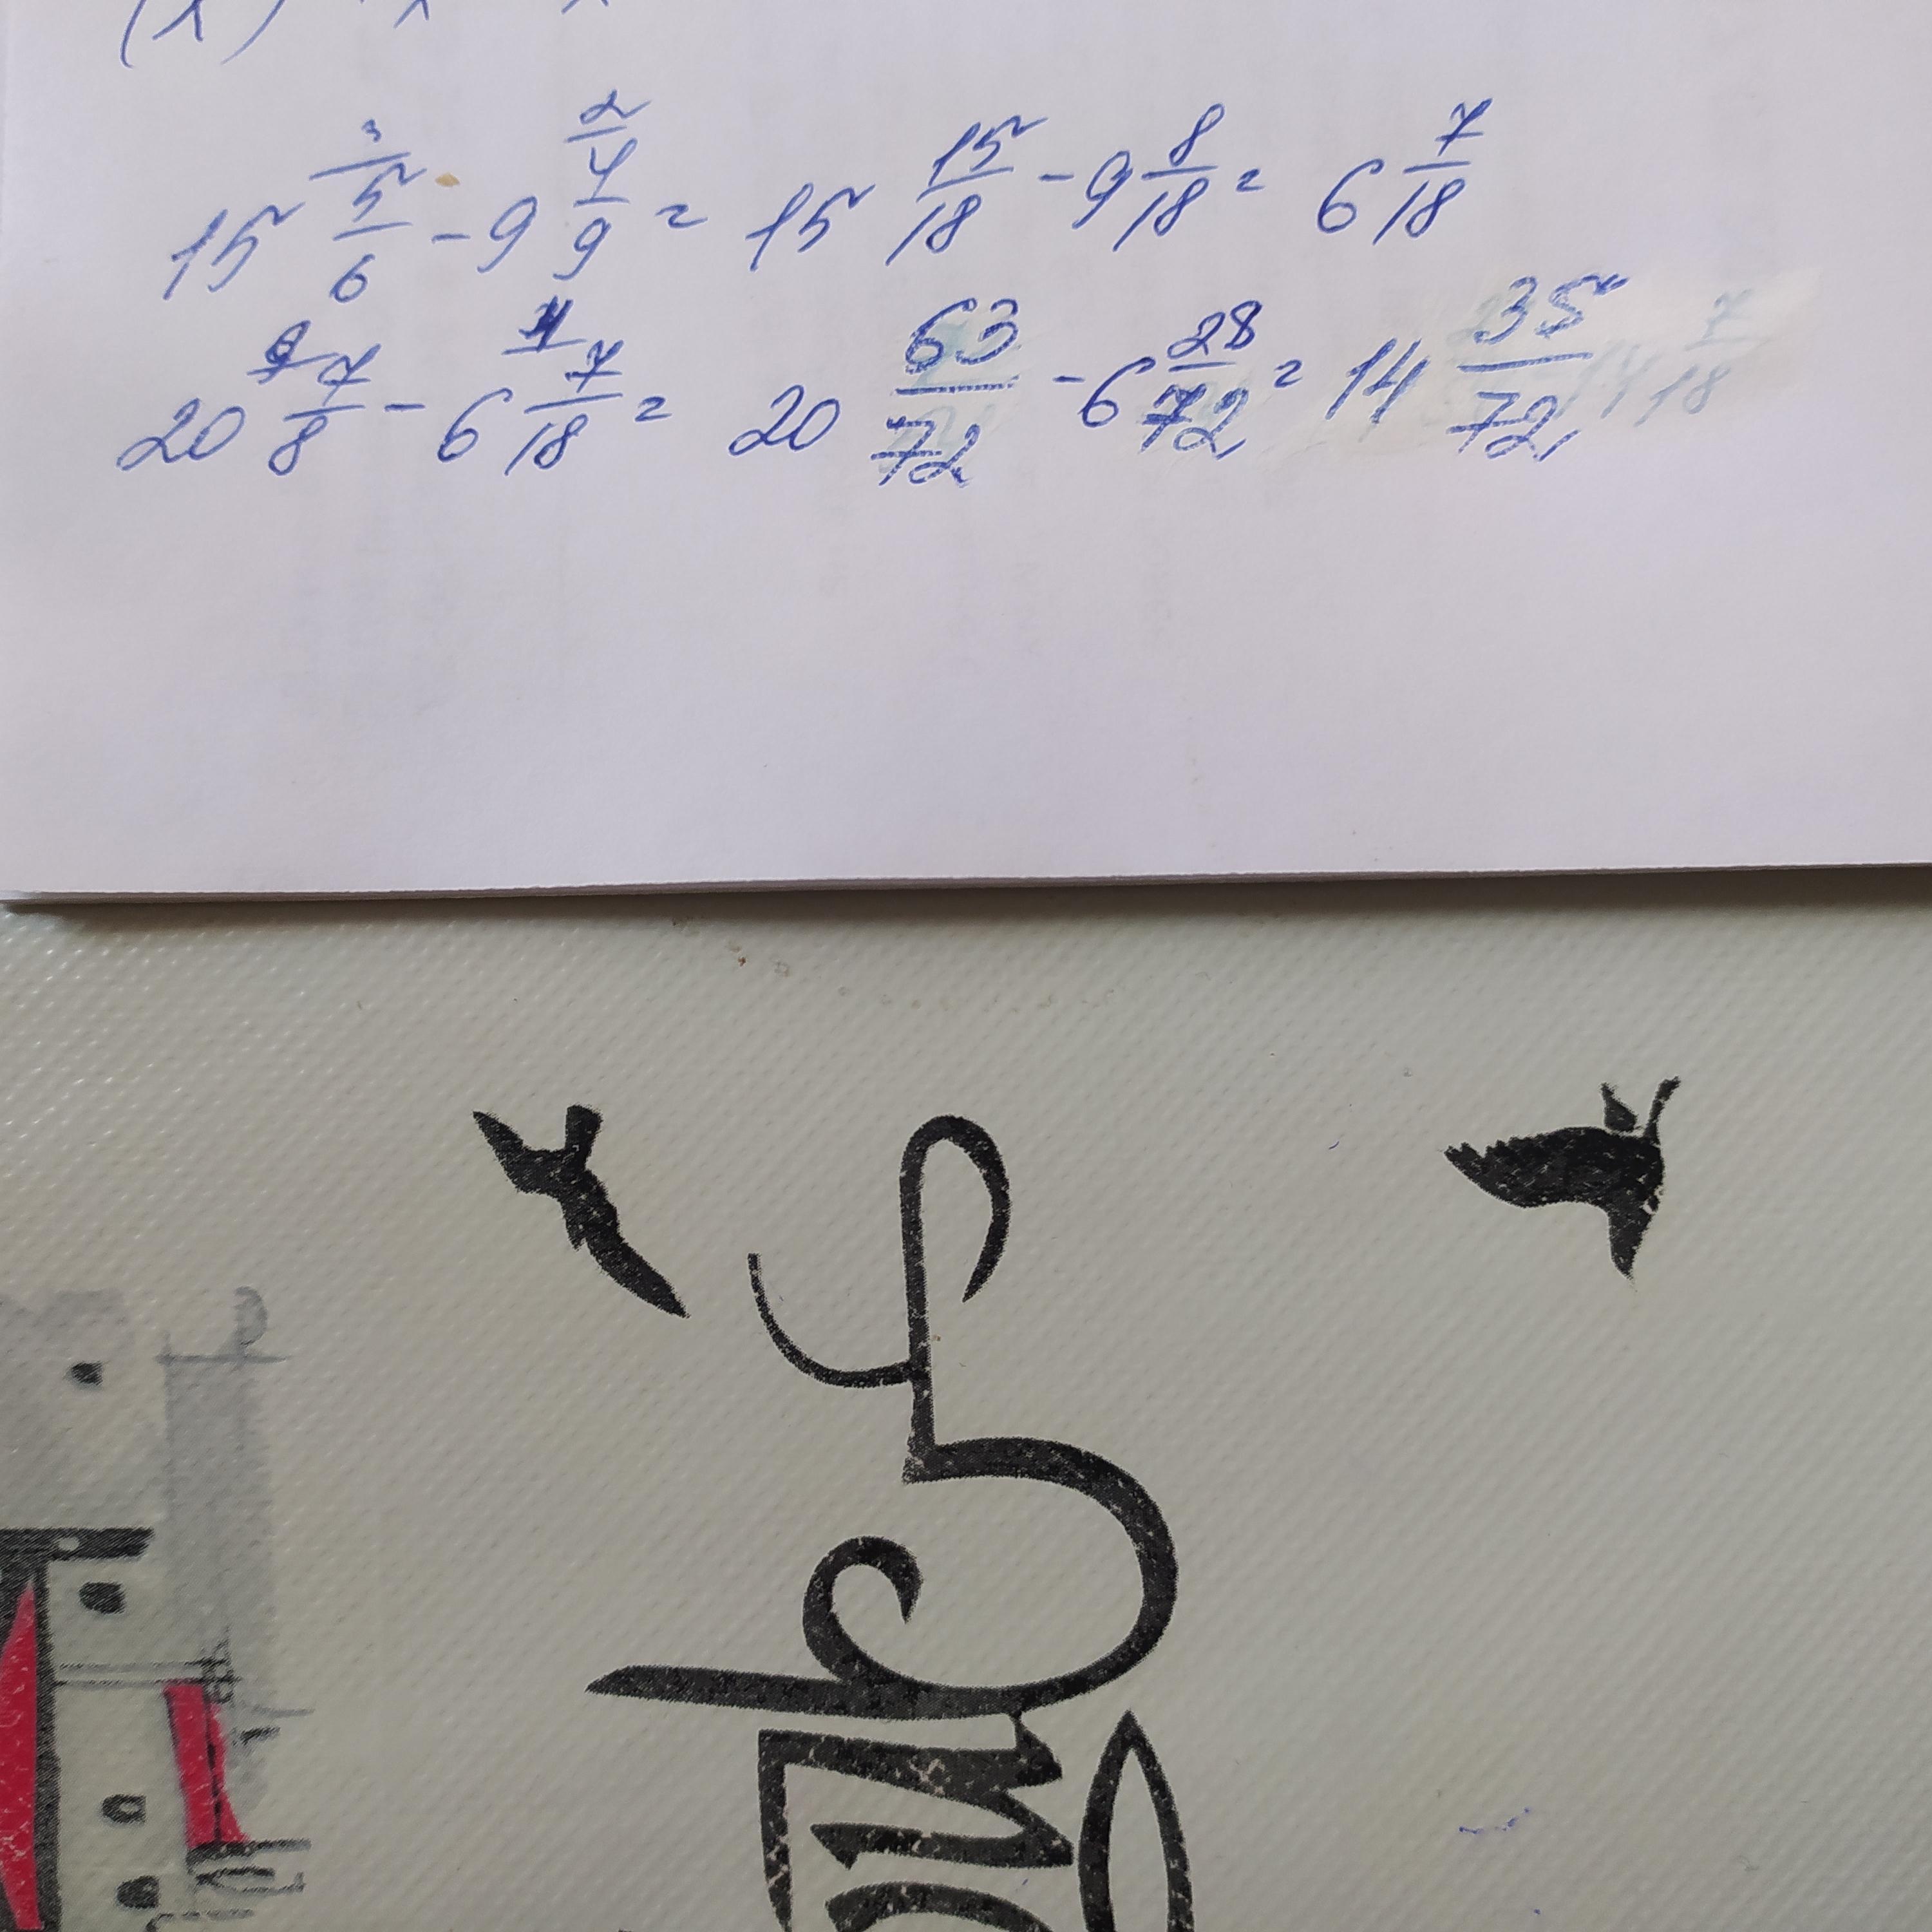 15 5/6 - 9 4/9 = 15 15/18 - 9 8/18 = 6 7/18
20 7/8 - 6 7/18 = 20 63/72 - 6 28/72 = 14 35/72